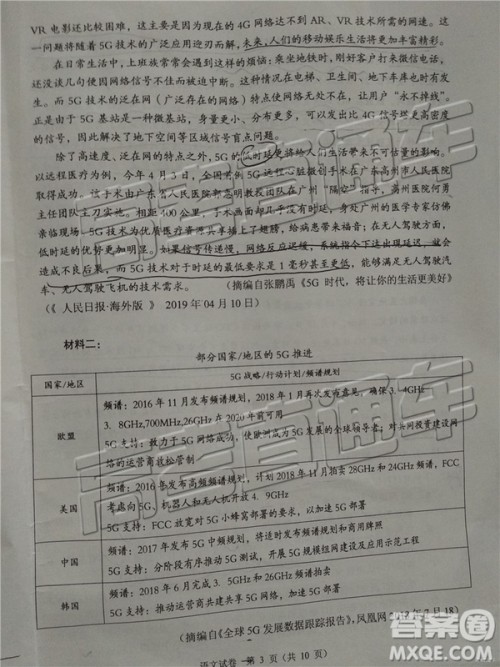 VR 电影还比较困难，这主要是因为现在的 4G 网络达不到 AR、VR 技术所需的网速。这
一问题将随着 5G 技术的广泛应用迎刃而解,未来,人们的移动娱乐生活将更加丰富精彩。
在日常生活中，上班族常常会遇到这样的烦恼：乘坐地铁时，刚好客户打来微信电话，
还没谈几句便因网络信号不佳而被迫中断。这种情况在电梯、卫生间、地下车库也时有发
生。而 5G 技术的泛在网（广泛存在的网络）特点使网络无处不在，让用户“永不掉线”。
正是由于 5G 基站是一种微基站，身量更小、分布更多，可以发出比 4G 信号塔更高密度
的信号，因此解决了地下空间等区域信号盲点问题。
除了高速度、泛在网的特点之外,5G 的低时延更将给人们生活带来不可估量的影响。
以远程医疗为例，今年 4 月 3 日，全国首例 5G 远程心脏微创手术在广东高州市人民医院
取得成功。该手术由广东省人民医院郭惠明教授团队在广州“隔空”指导，高州医院何勇
主任团队主刀实施。相距 400 公里，手术画面却几乎没有时延，身处广州的医学专家仿佛
亲临现场。5G 技术为优质医疗资源共享插上了翅膀，给病患带来福音；在无人驾驶方面，
低时延的优势更加明显。如果信号传递慢，网络反应迟缓，系统指令下达出现延迟，就会
造成不良后果,而 5G 技术对于时延的最低要求是 1 毫秒甚至更低，能够满足无人驾驶汽车、
无人驾驶飞机的技术需求。（摘编自张鹏禹《5G 时代，将让你的生活更美好》
（《 人民日报·海外版 》 2019 年 04 月 10 日）
材料二：
部分国家/地区的 5G 推进
国家/地区 5G 战略/行动计划/频谱规划
欧盟
频谱：2016 年 11 月发布频谱规划，2018 年 1 月再次发布意见，确保 3. 4GHz
3. 8GHz,700MHz,26GHz 在 2020 年前可用
5G 支持：致力于 5G 网络成功，使欧洲成为 5G 发展的全球领导者；对共同投资建设网
络的运营商放松管制
美国
频谱：2016 年发布高频频谱规划，计划 2018 年 11 月拍卖 28GHz 和 24GHz 频谱，FCC
考虑向 5G、机器人和无人机开放 4. 9GHz
5G 支持：FCC 放宽对 5G 小蜂窝部署的要求，以加速 5G 部署
中国
频谱：2017 年发布 5G 中频规划，将适时发布频谱规划和商用牌照
5G 支持：分阶段有序推动 5G 测试，开展 5G 规模组网建设及应用示范工程
韩国
频谱：2018 年 6 月完成 3. 5GHz 和 26GHz 频谱拍卖
5G 支持：推动运营商共建共享 5G 网络，加速 5G 部署
（摘编自《全球 5G 发展数据跟踪报告》，凤凰网
语文试卷 第 3 页（共 10 页）
高考直通车
高考直通车